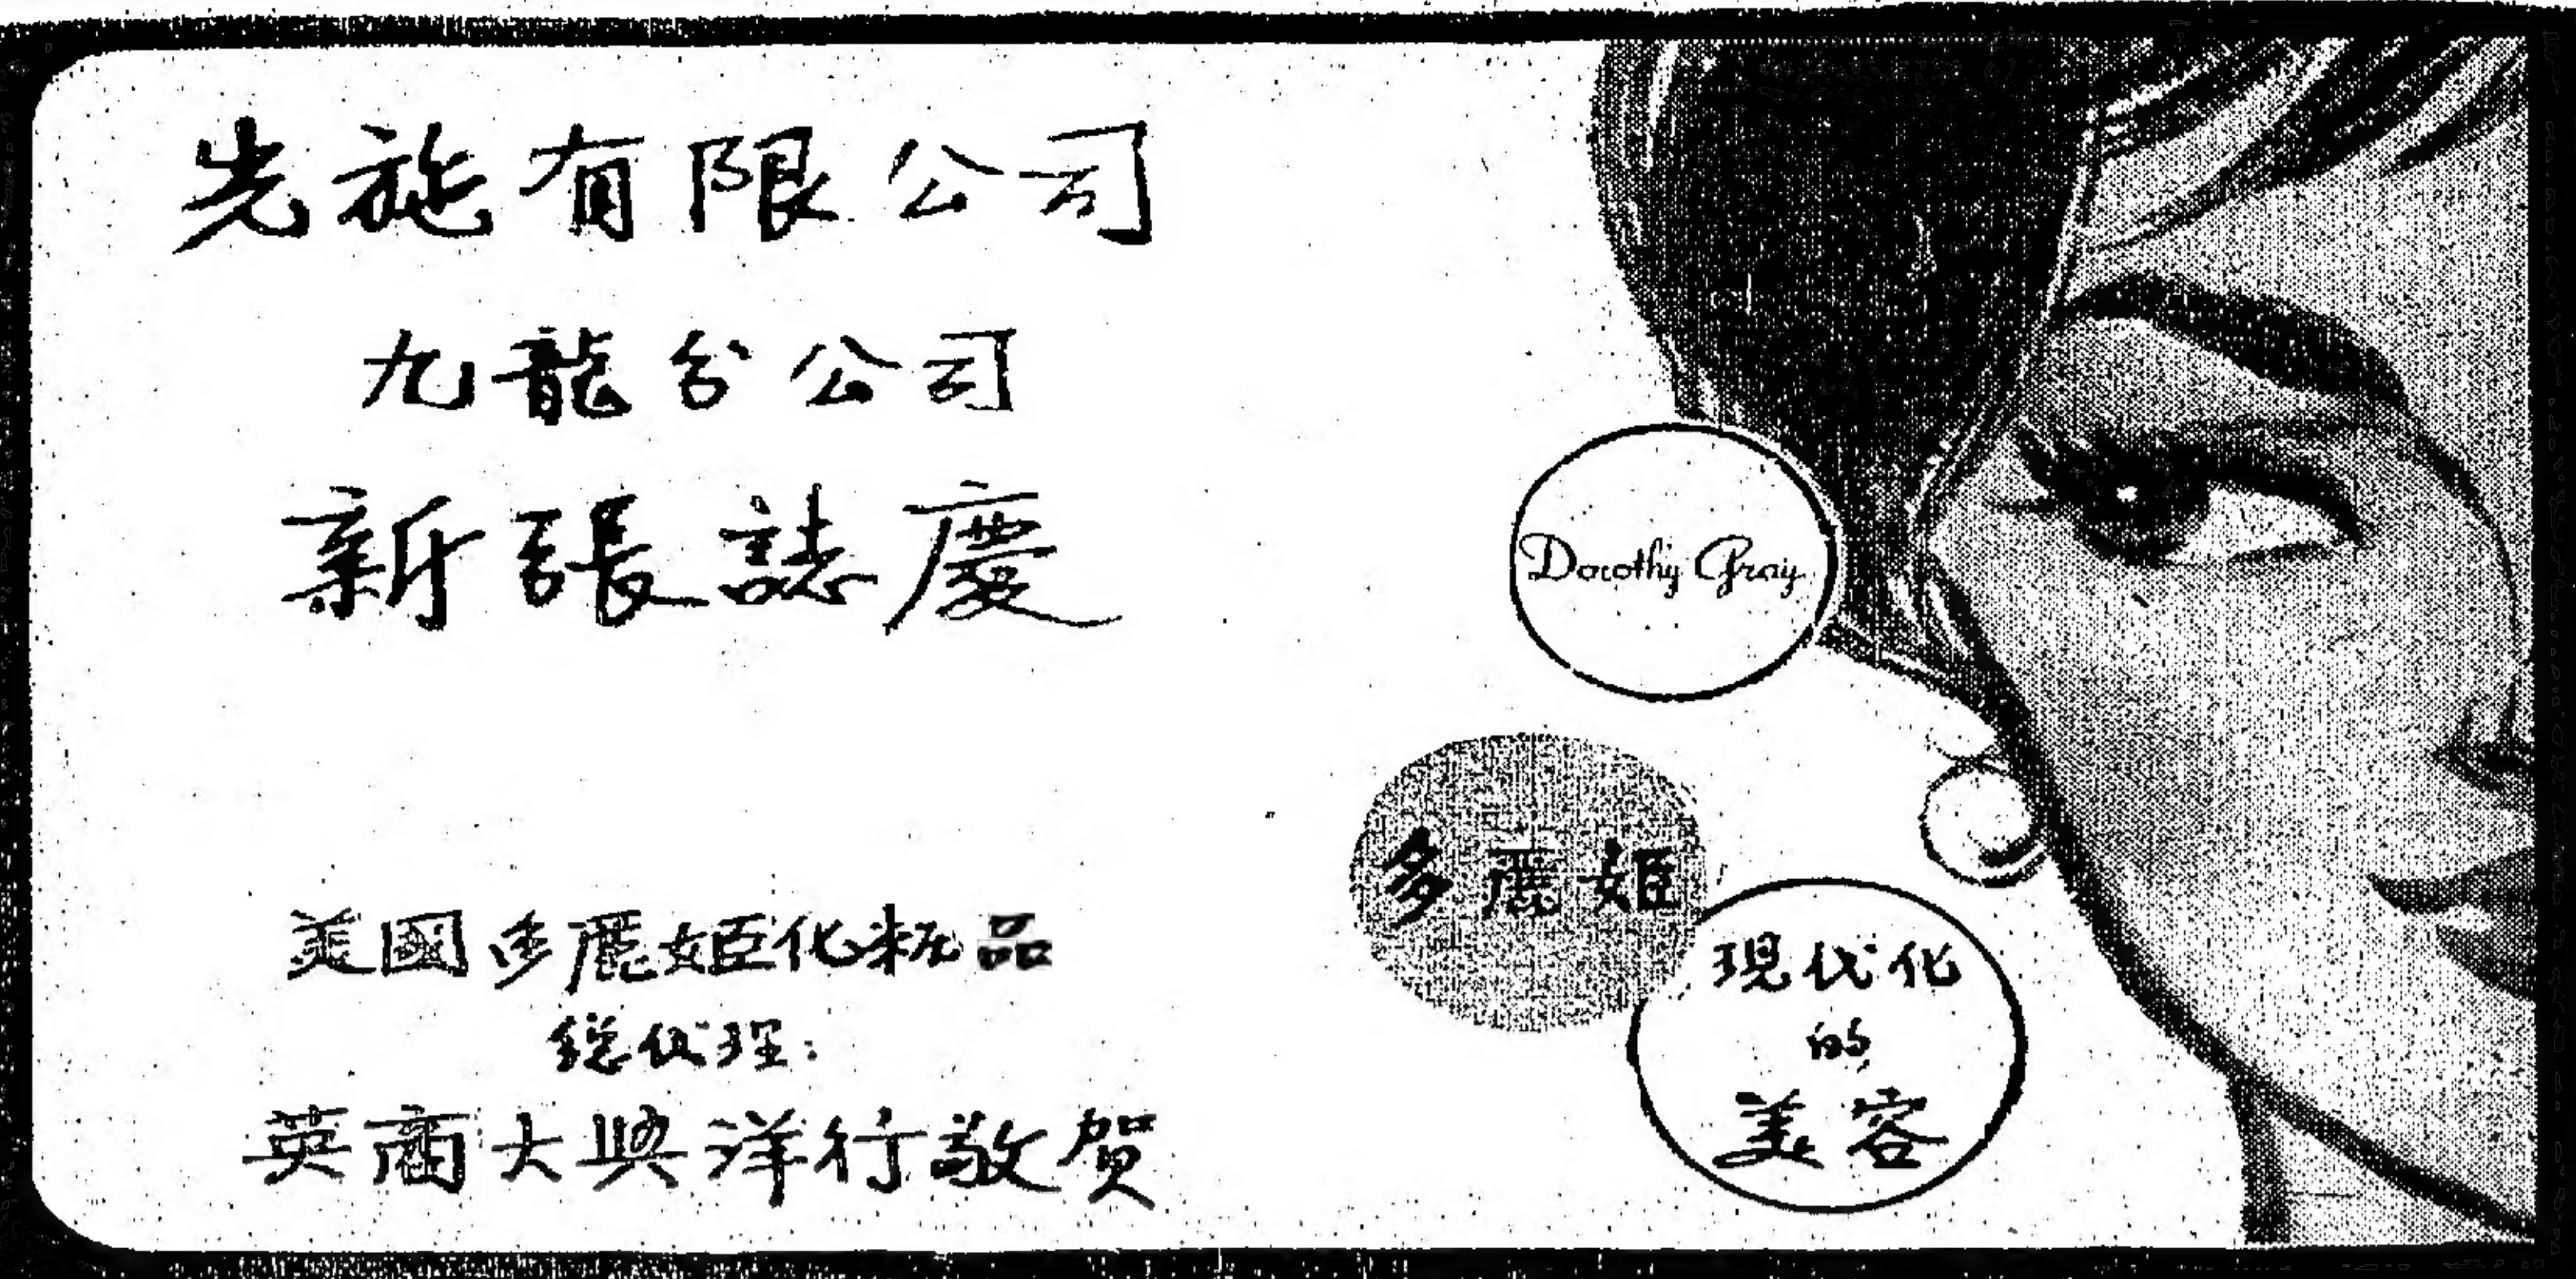 先施有限公司
九龍分公司
新張誌慶
美國多麗姬化粧品
總代理：
英商大興洋行敬賀
Dorothy Gray
多麗姬
現代化
的
美容